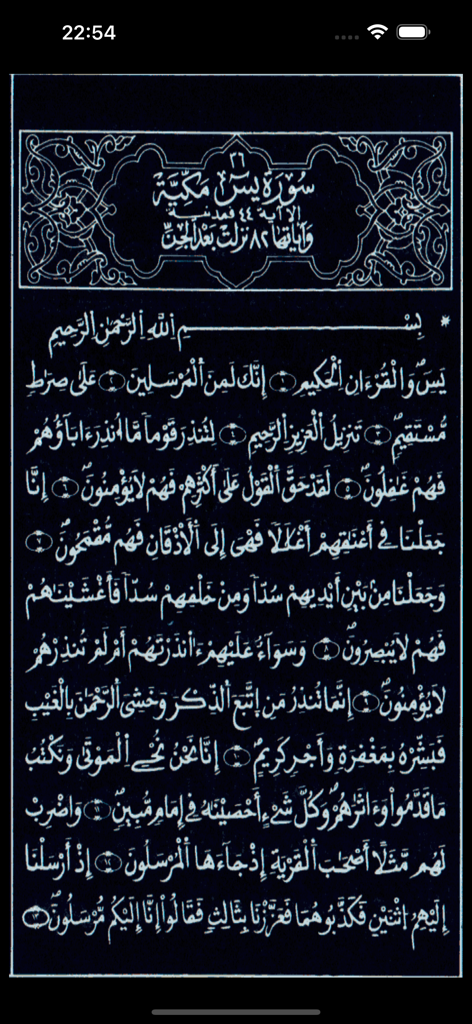 22:54
٣٦
سُورَة يسٓ مَكِّيَّة
إلا آية ٤٤ فمدنية
وَآيَاتها ٨٢ نزلت بَعْد الجِنّ
* بِسْمِ اِللَّهِ اِلرَّحْمَٰنِ اِلرَّحِيمِ
يَسٓ وَالْقُرْءَانِ اِلْحَكِيمِ ١ إِنَّكَ لَمِنَ اَلْمُرْسَلِينَ ٢ عَلَىٰ صِرَٰطٖ
مُّسْتَقِيمٖ ٣ تَنزِيلُ اُلْعَزِيزِ اِلرَّحِيمِ ٤ لِتُنذِرَ قَوْماٗ مَّا أُنذِرَ ءَابَآؤُهُمْ
فَهُمْ غَٰفِلُونَ ٥ لَقَدْ حَقَّ اَلْقَوْلُ عَلَىٰ أَكْثَرِهِمْ فَهُمْ لَا يُؤْمِنُونَ ٦ إِنَّا
جَعَلْنَا فِےٓ أَعْنَٰقِهِمْ أَغْلَٰلاٗ فَهِيَ إِلَى اَلْأَذْقَانِ فَهُم مُّقْمَحُونَ ٧
وَجَعَلْنَا مِنۢ بَيْنِ أَيْدِيهِمْ سُدّاٗ وَمِنْ خَلْفِهِمْ سُدّاٗ فَأَغْشَيْنَٰهُمْ
فَهُمْ لَا يُبْصِرُونَ ٨ وَسَوَآءٌ عَلَيْهِمُۥٓ ءَآنذَرْتَهُمُۥٓ أَمْ لَمْ تُنذِرْهُمْ
لَا يُؤْمِنُونَ ٩ إِنَّمَا تُنذِرُ مَنِ اِتَّبَعَ اَلذِّكْرَ وَخَشِيَ اَلرَّحْمَٰنَ بِالْغَيْبِ
فَبَشِّرْهُ بِمَغْفِرَةٖ وَأَجْرٖ كَرِيمٍ ١٠ إِنَّا نَحْنُ نُحْيِ اِلْمَوْتَىٰ وَنَكْتُبُ
مَا قَدَّمُواْ وَءَاثَٰرَهُمْ وَكُلَّ شَےْءٍ أَحْصَيْنَٰهُ فِےٓ إِمَامٖ مُّبِينٖ ١١ وَاضْرِبْ
لَهُم مَّثَلاً أَصْحَٰبَ اَلْقَرْيَةِ إِذْ جَآءَهَا اَلْمُرْسَلُونَ ١٢ إِذْ أَرْسَلْنَآ
إِلَيْهِمُ اُثْنَيْنِ فَكَذَّبُوهُمَا فَعَزَّزْنَا بِثَالِثٖ فَقَالُوٓاْ إِنَّآ إِلَيْكُم مُّرْسَلُونَ ١٣